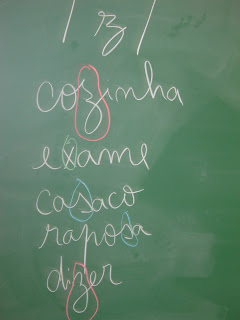 /z/
cozinha
exame
casaco
raposa
dizer